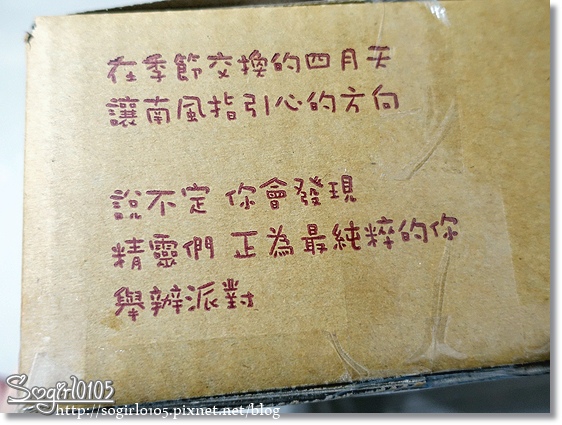 在季節交換的四月天
讓南風指引心的方向
說不定 你會發現
精靈們 正為最純粹的你
舉辦派對
Sogirl0105
http://sogirl0105.pixnet.net/blog